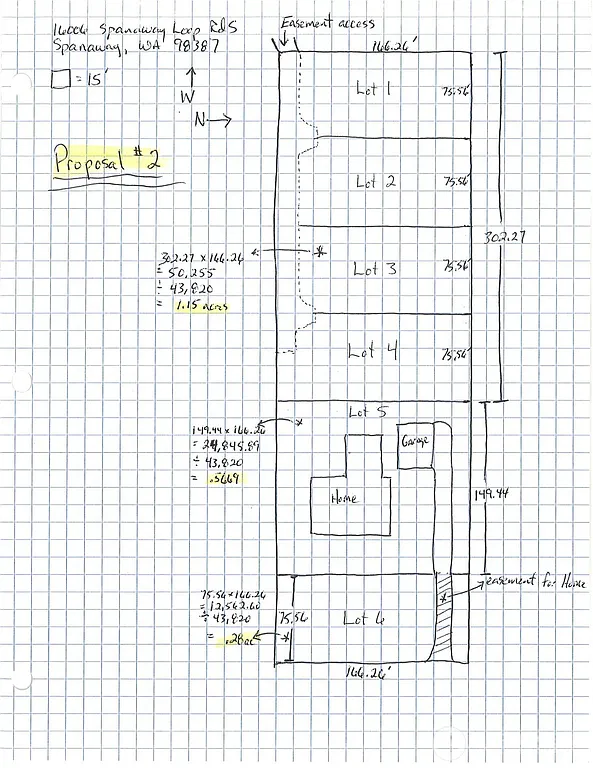 16006 Spanaway Loop Rd S
Spanaway, WA 98387
= 15'
W
N
Proposal #2
Easement access
166.26'
Lot 1
75.56'
Lot 2
75.56'
302.27
302.27 x 166.26
= 50,255
÷ 43,820
= 1.15 acres
*
Lot 3
75.56'
Lot 4
75.56'
Lot 5
149.44 x 166.26
= 24,845.89
÷ 43,820
= .5669
*
Garage
Home
149.44
easement for Home
*
75.56 x 166.26
= 12,562.60
÷ 43,820
= .28ac
75.56
*
Lot 6
166.26'